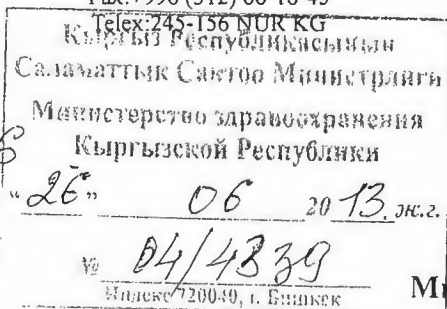 Telex:245-156 NUR KG
Кыргыз Республикасынын
Саламаттык Сактоо Министрлиги
Министерство здравоохранения
Кыргызской Республики
"26" 06 2013 ж.г.
№ 04/4839
Индекс 720040, г. Бишкек